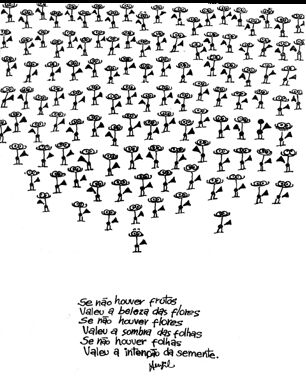 Se não houver frutos
Valeu a beleza das flores
Se não houver flores
Valeu a sombra das folhas
Se não houver folhas
Valeu a intenção da semente.
Henfil